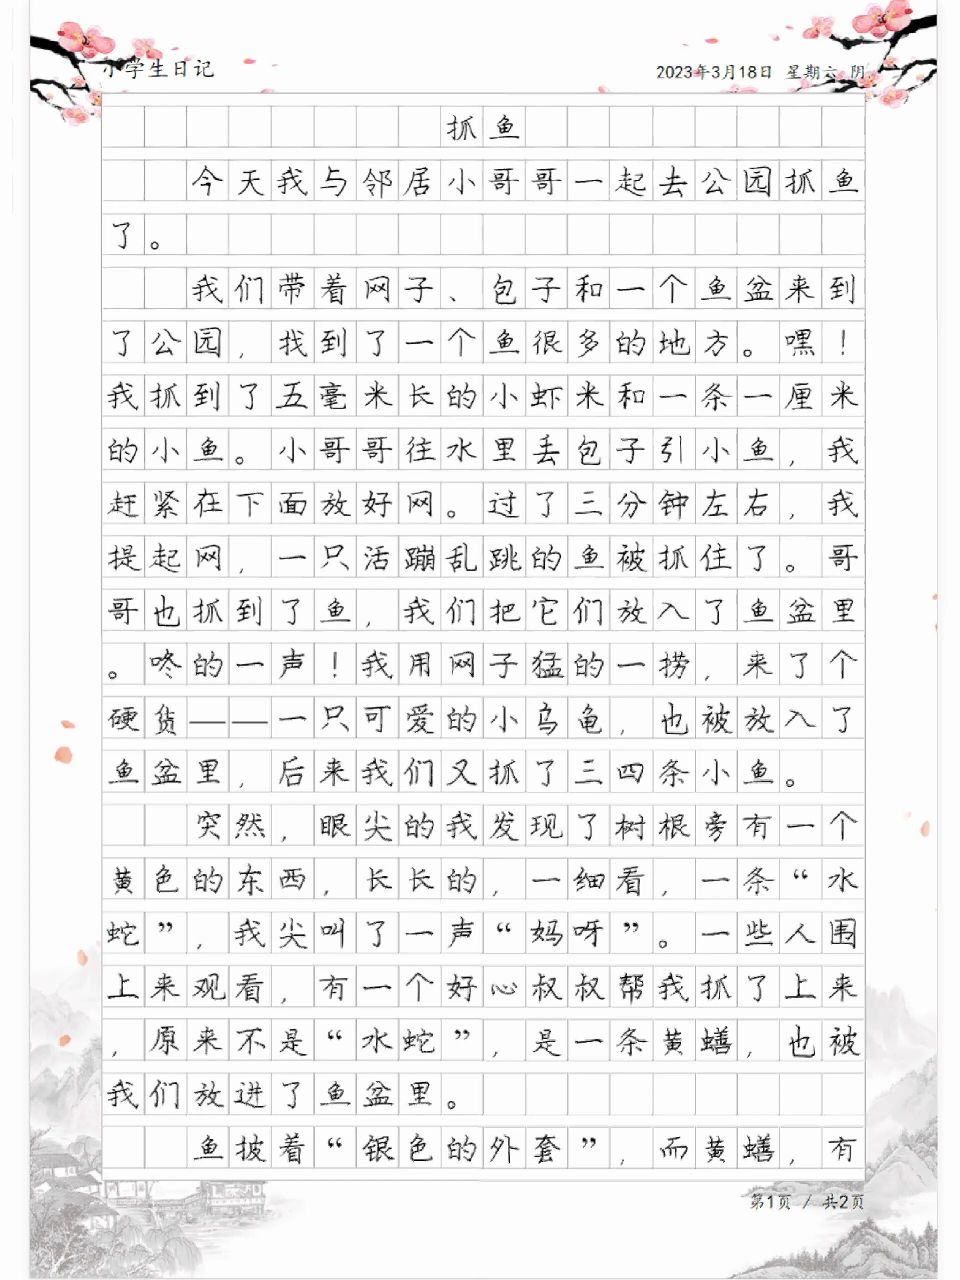 小学生日记
2023年3月18日 星期六 阴
抓鱼
今天我与邻居小哥哥一起去公园抓鱼
了。
我们带着网子、包子和一个鱼盆来到
了公园，找到了一个鱼很多的地方。嘿！
我抓到了五毫米长的小虾米和一条一厘米
的小鱼。小哥哥往水里丢包子引小鱼，我
赶紧在下面放好网。过了三分钟左右，我
提起网，一只活蹦乱跳的鱼被抓住了。哥
哥也抓到了鱼，我们把它们放入了鱼盆里
。咚的一声！我用网子猛的一捞，来了个
硬货——一只可爱的小乌龟，也被放入了
鱼盆里，后来我们又抓了三四条小鱼。
突然，眼尖的我发现了树根旁有一个
黄色的东西，长长的，一细看，一条“水
蛇”，我尖叫了一声“妈呀”。一些人围
上来观看，有一个好心叔叔帮我抓了上来
，原来不是“水蛇”，是一条黄鳝，也被
我们放进了鱼盆里。
鱼披着“银色的外套”，而黄鳝，有
第1页 / 共2页